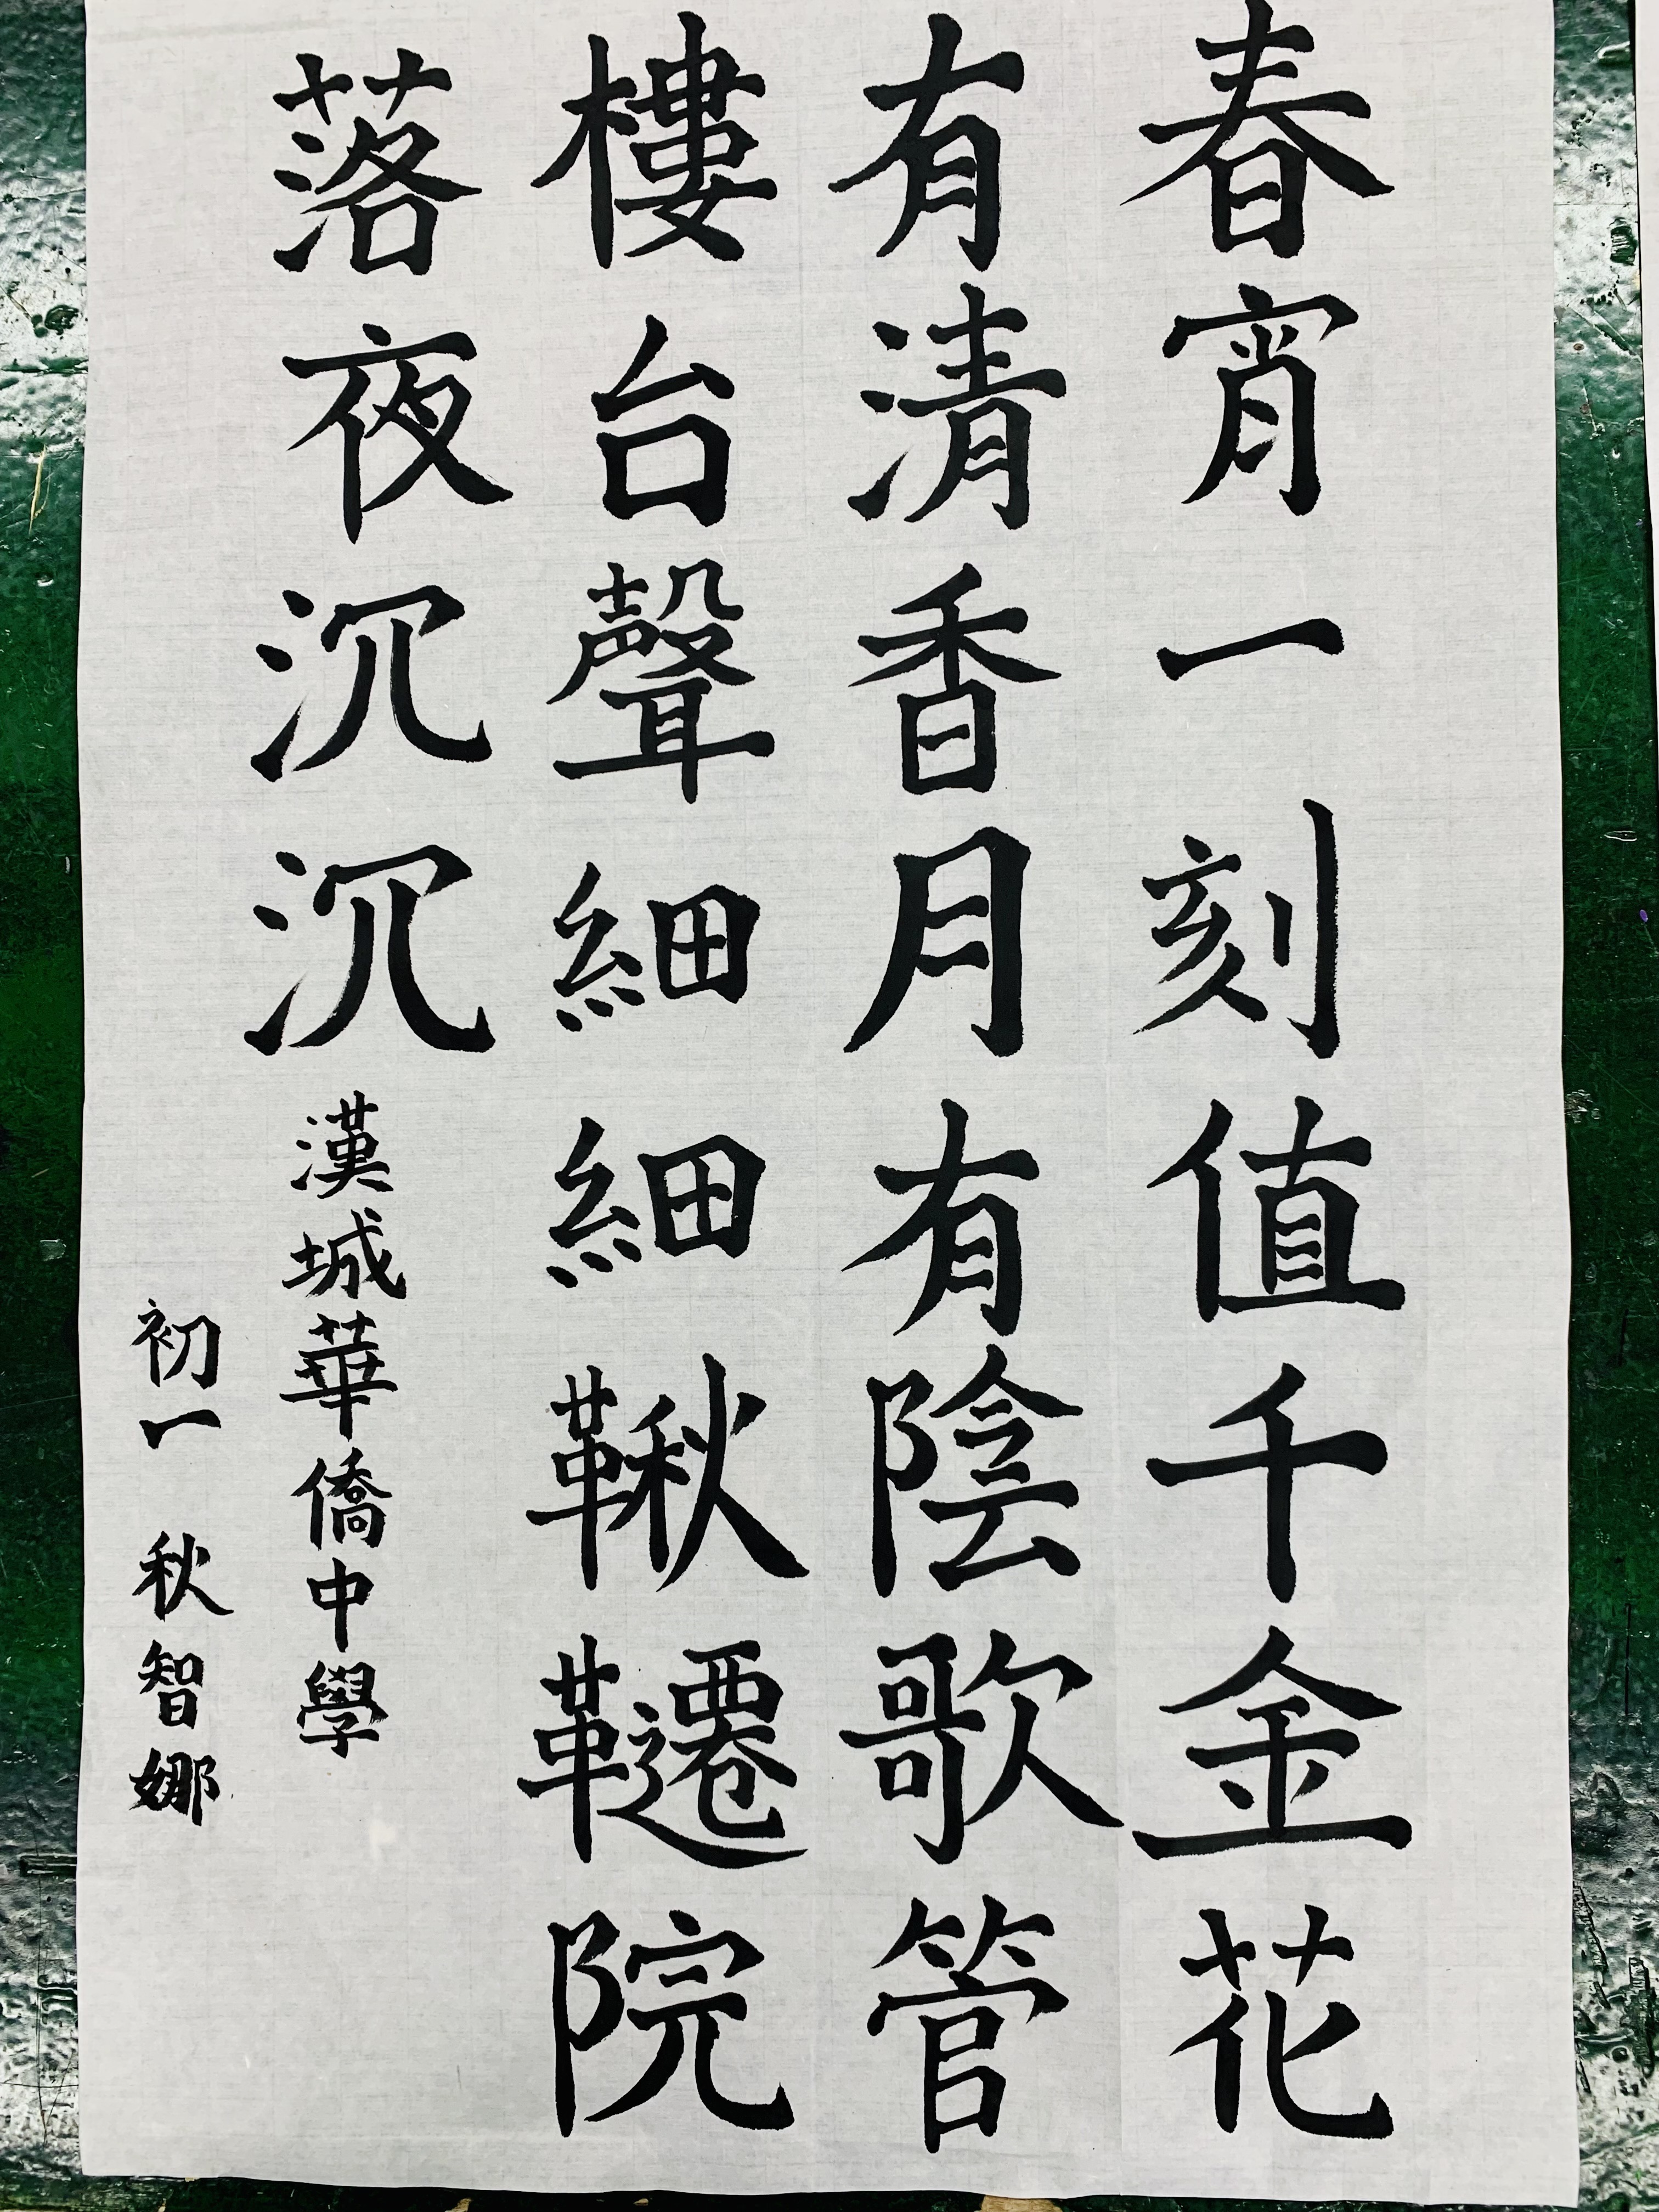 春宵一刻值千金花
有清香月有陰歌管
樓台聲細細鞦韆院
落夜沉沉
漢城華僑中學
初一 秋智娜